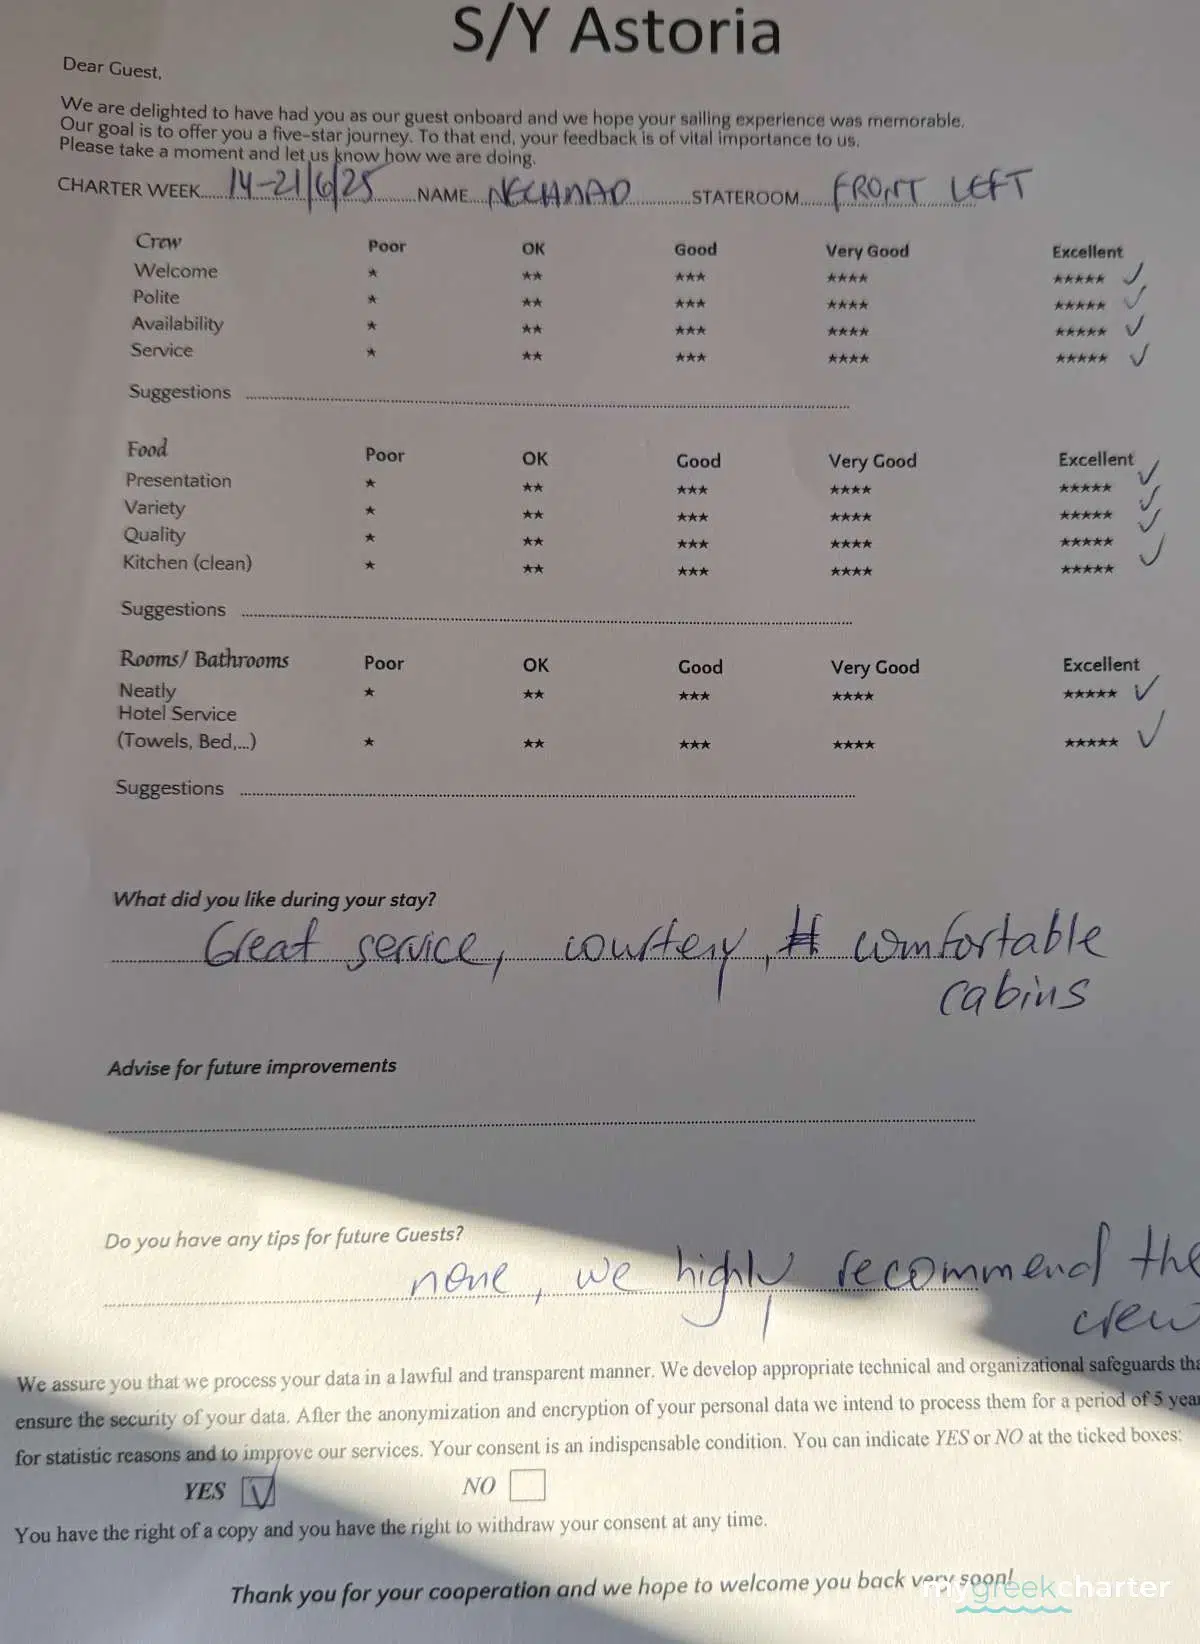 S/Y Astoria
Dear Guest,
We are delighted to have had you as our guest onboard and we hope your sailing experience was memorable.
Our goal is to offer you a five-star journey. To that end, your feedback is of vital importance to us.
Please take a moment and let us know how we are doing.
CHARTER WEEK 14-21/6/25 NAME NECHMAD STATEROOM FRONT LEFT
Crew Poor OK Good Very Good Excellent
Welcome ★ ★★ ★★★ ★★★★ ★★★★★ ✓
Polite ★ ★★ ★★★ ★★★★ ★★★★★ ✓
Availability ★ ★★ ★★★ ★★★★ ★★★★★ ✓
Service ★ ★★ ★★★ ★★★★ ★★★★★ ✓
Suggestions
Food Poor OK Good Very Good Excellent
Presentation ★ ★★ ★★★ ★★★★ ★★★★★ ✓
Variety ★ ★★ ★★★ ★★★★ ★★★★★ ✓
Quality ★ ★★ ★★★ ★★★★ ★★★★★ ✓
Kitchen (clean) ★ ★★ ★★★ ★★★★ ★★★★★ ✓
Suggestions
Rooms/ Bathrooms Poor OK Good Very Good Excellent
Neatly ★ ★★ ★★★ ★★★★ ★★★★★ ✓
Hotel Service
(Towels, Bed,...) ★ ★★ ★★★ ★★★★ ★★★★★ ✓
Suggestions
What did you like during your stay?
Great service, courtesy, comfortable
cabins
Advise for future improvements
Do you have any tips for future Guests?
none, we highly recommend the
crew
We assure you that we process your data in a lawful and transparent manner. We develop appropriate technical and organizational safeguards tha
ensure the security of your data. After the anonymization and encryption of your personal data we intend to process them for a period of 5 year
for statistic reasons and to improve our services. Your consent is an indispensable condition. You can indicate YES or NO at the ticked boxes:
YES ✓ NO
You have the right of a copy and you have the right to withdraw your consent at any time.
Thank you for your cooperation and we hope to welcome you back very soon!
mygreekcharter